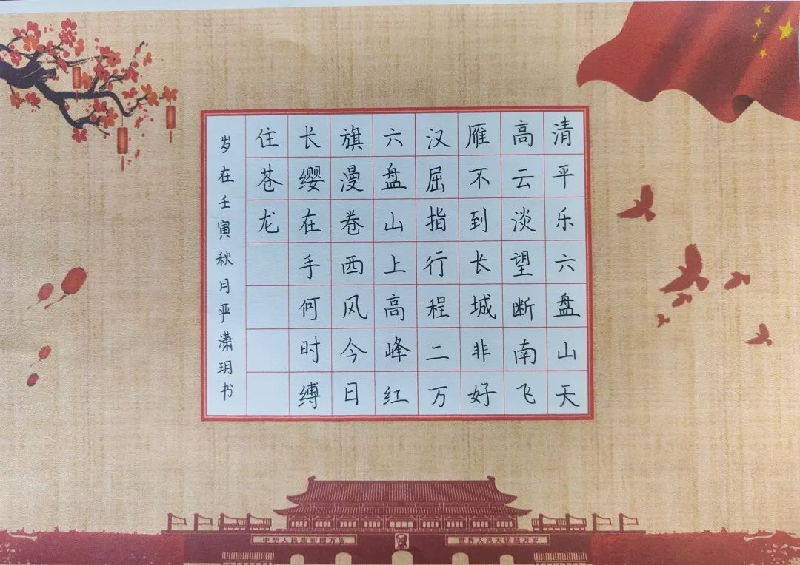 清平乐六盘山天
高云淡望断南飞
雁不到长城非好
汉屈指行程二万
六盘山上高峰红
旗漫卷西风今日
长缨在手何时缚
住苍龙
岁在壬寅秋月严潇玥书
中华人民共和国万岁
世界人民大团结万岁